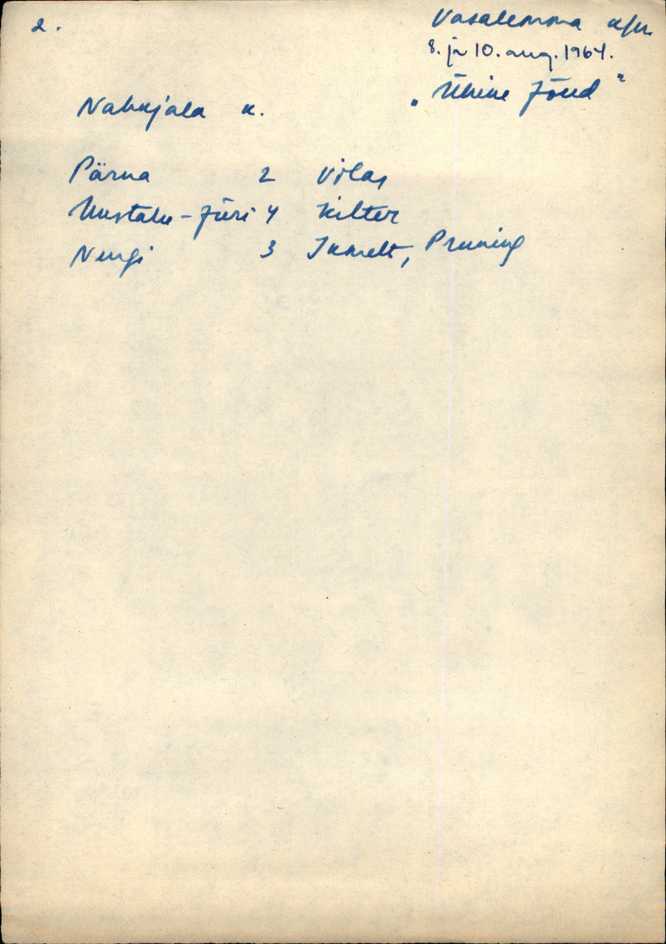 2.
Vasalemma k/n.
8. ja 10. aug. 1964.
„Ühine Jõud"
Nahkjala k.
Pärna 2 Vilas
Uustalu-Jüri 4 Kilter
Nurgi 3 Ikmelt, Pruning